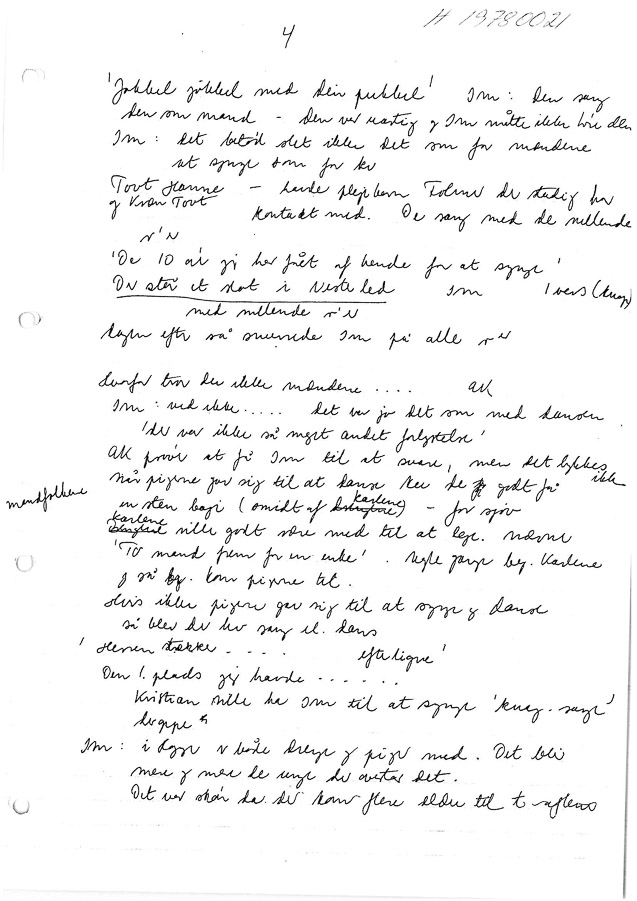 H 19780021
4
'Jokkel jokkel med din pukkel' Im: Den sang
den om mand - Den var uartig og Im måtte ikke høre den
Im: det betød slet ikke det som for mændene
at synge som for kv
Tovt Hanne - havde plejebarn Folmer der stadig har
og Kræn Tovt kontakt med. De sang med de rullende
r'er
'De 10 ør jeg har fået af hende for at synge'
Der står et slot i Vesterled Im 1 vers (knap)
med rullende r'er
dagen efter så snurrede Im på alle r'er
Hvorfor tror du ikke mændene .... AK
Im: ved ikke ..... det var jo det som med dansen
'der var ikke så meget andet forlystelse'
AK prøver at få Im til at svare, men det lykkes ikke
Når pigerne gav sig til at danse ku de godt få
mandfolkene
en sten bagi (smidt af karlene) - for sjov
karlene ville godt være med til at lege. nævner
'To mand frem for en enke'. Nogle gange beg. karlene
og så kom pigerne til.
Hvis ikke pigerne gav sig til at synge og danse
så blev der hv sang el. dans
'Herren trækker - . . . . efterligne'
Den 1. plads jeg havde . . . . . .
Kristian ville ha Im til at synge 'knag-sange'
Im: i dag er både drenge og piger med. Det bli
mere og mere de unge der overtar det.
Det var skør da der kom flere ældre til aftens